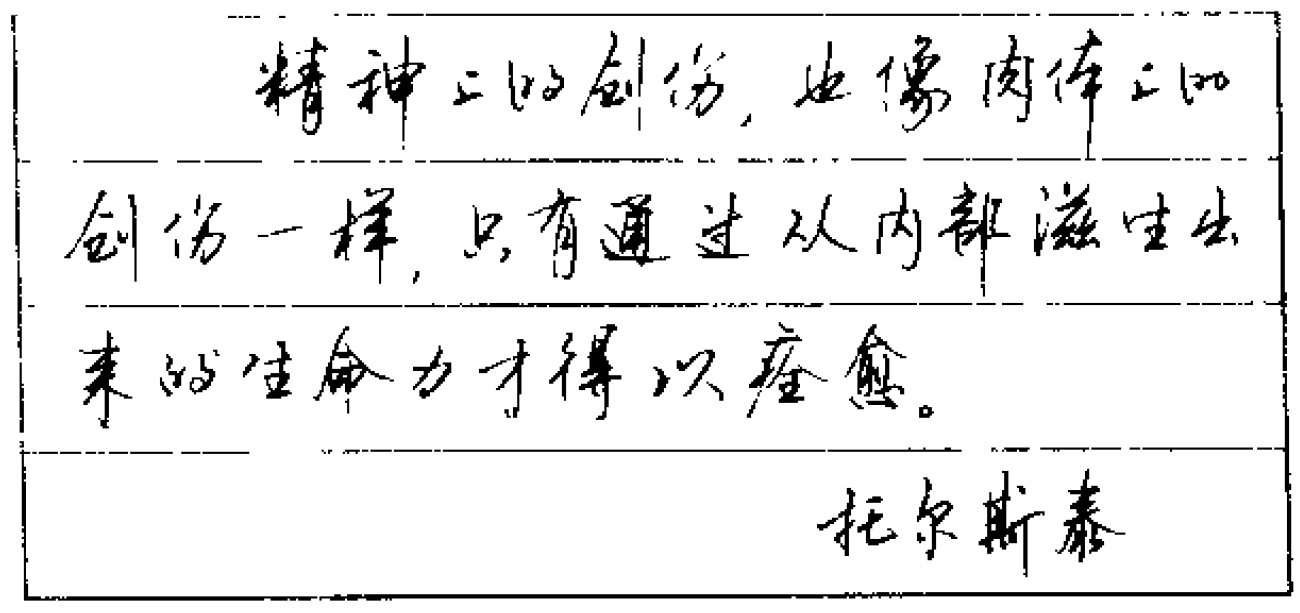 精神上的创伤,也像肉体上的
创伤一样,只有通过从内部滋生出
来的生命力才得以痊愈。
托尔斯泰